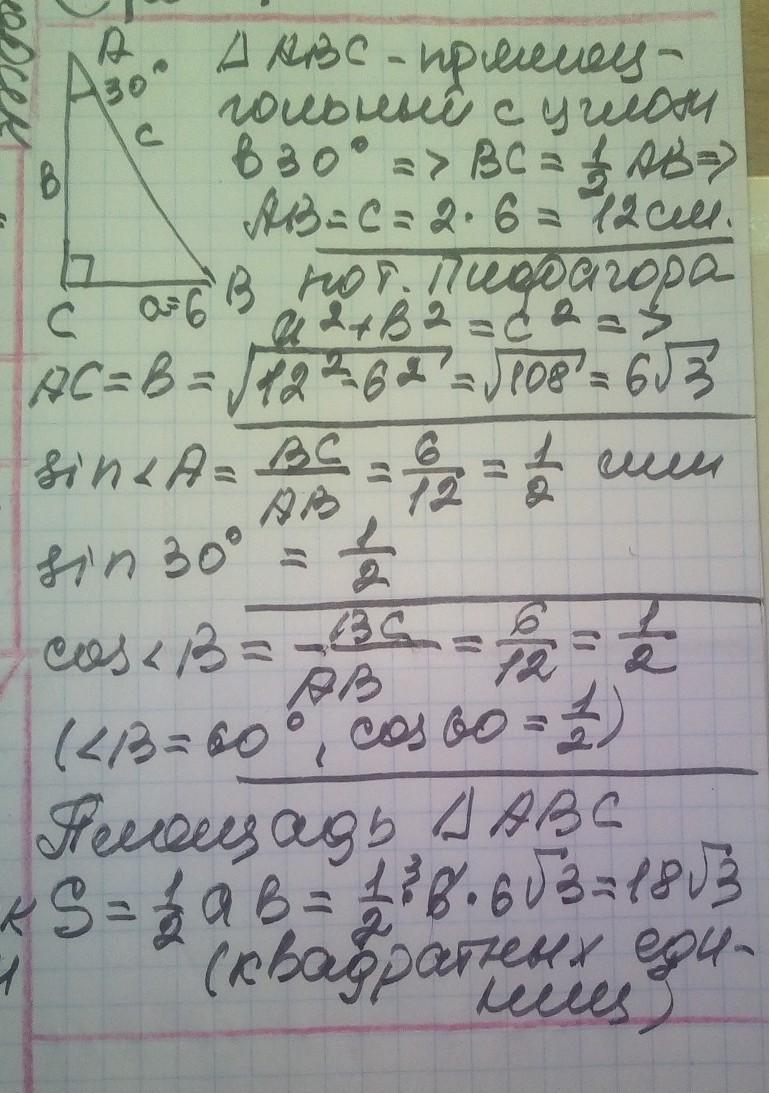 A
30°
C
B
C
a=6
B
Δ ABC - прямоу-
гольный с углом
в 30° => BC = 1/2 AB =>
AB = C = 2 · 6 = 12 см.
по т. Пифагора
a² + B² = C² =>
AC = B = √12² - 6² = √108 = 6√3
sin < A = BC/AB = 6/12 = 1/2 или
sin 30° = 1/2
cos < B = BC/AB = 6/12 = 1/2
(< B = 60°, cos 60 = 1/2)
Площадь Δ ABC
S = 1/2 a B = 1/2 · 6 · 6√3 = 18√3
3
(квадратных еди-
ниц)